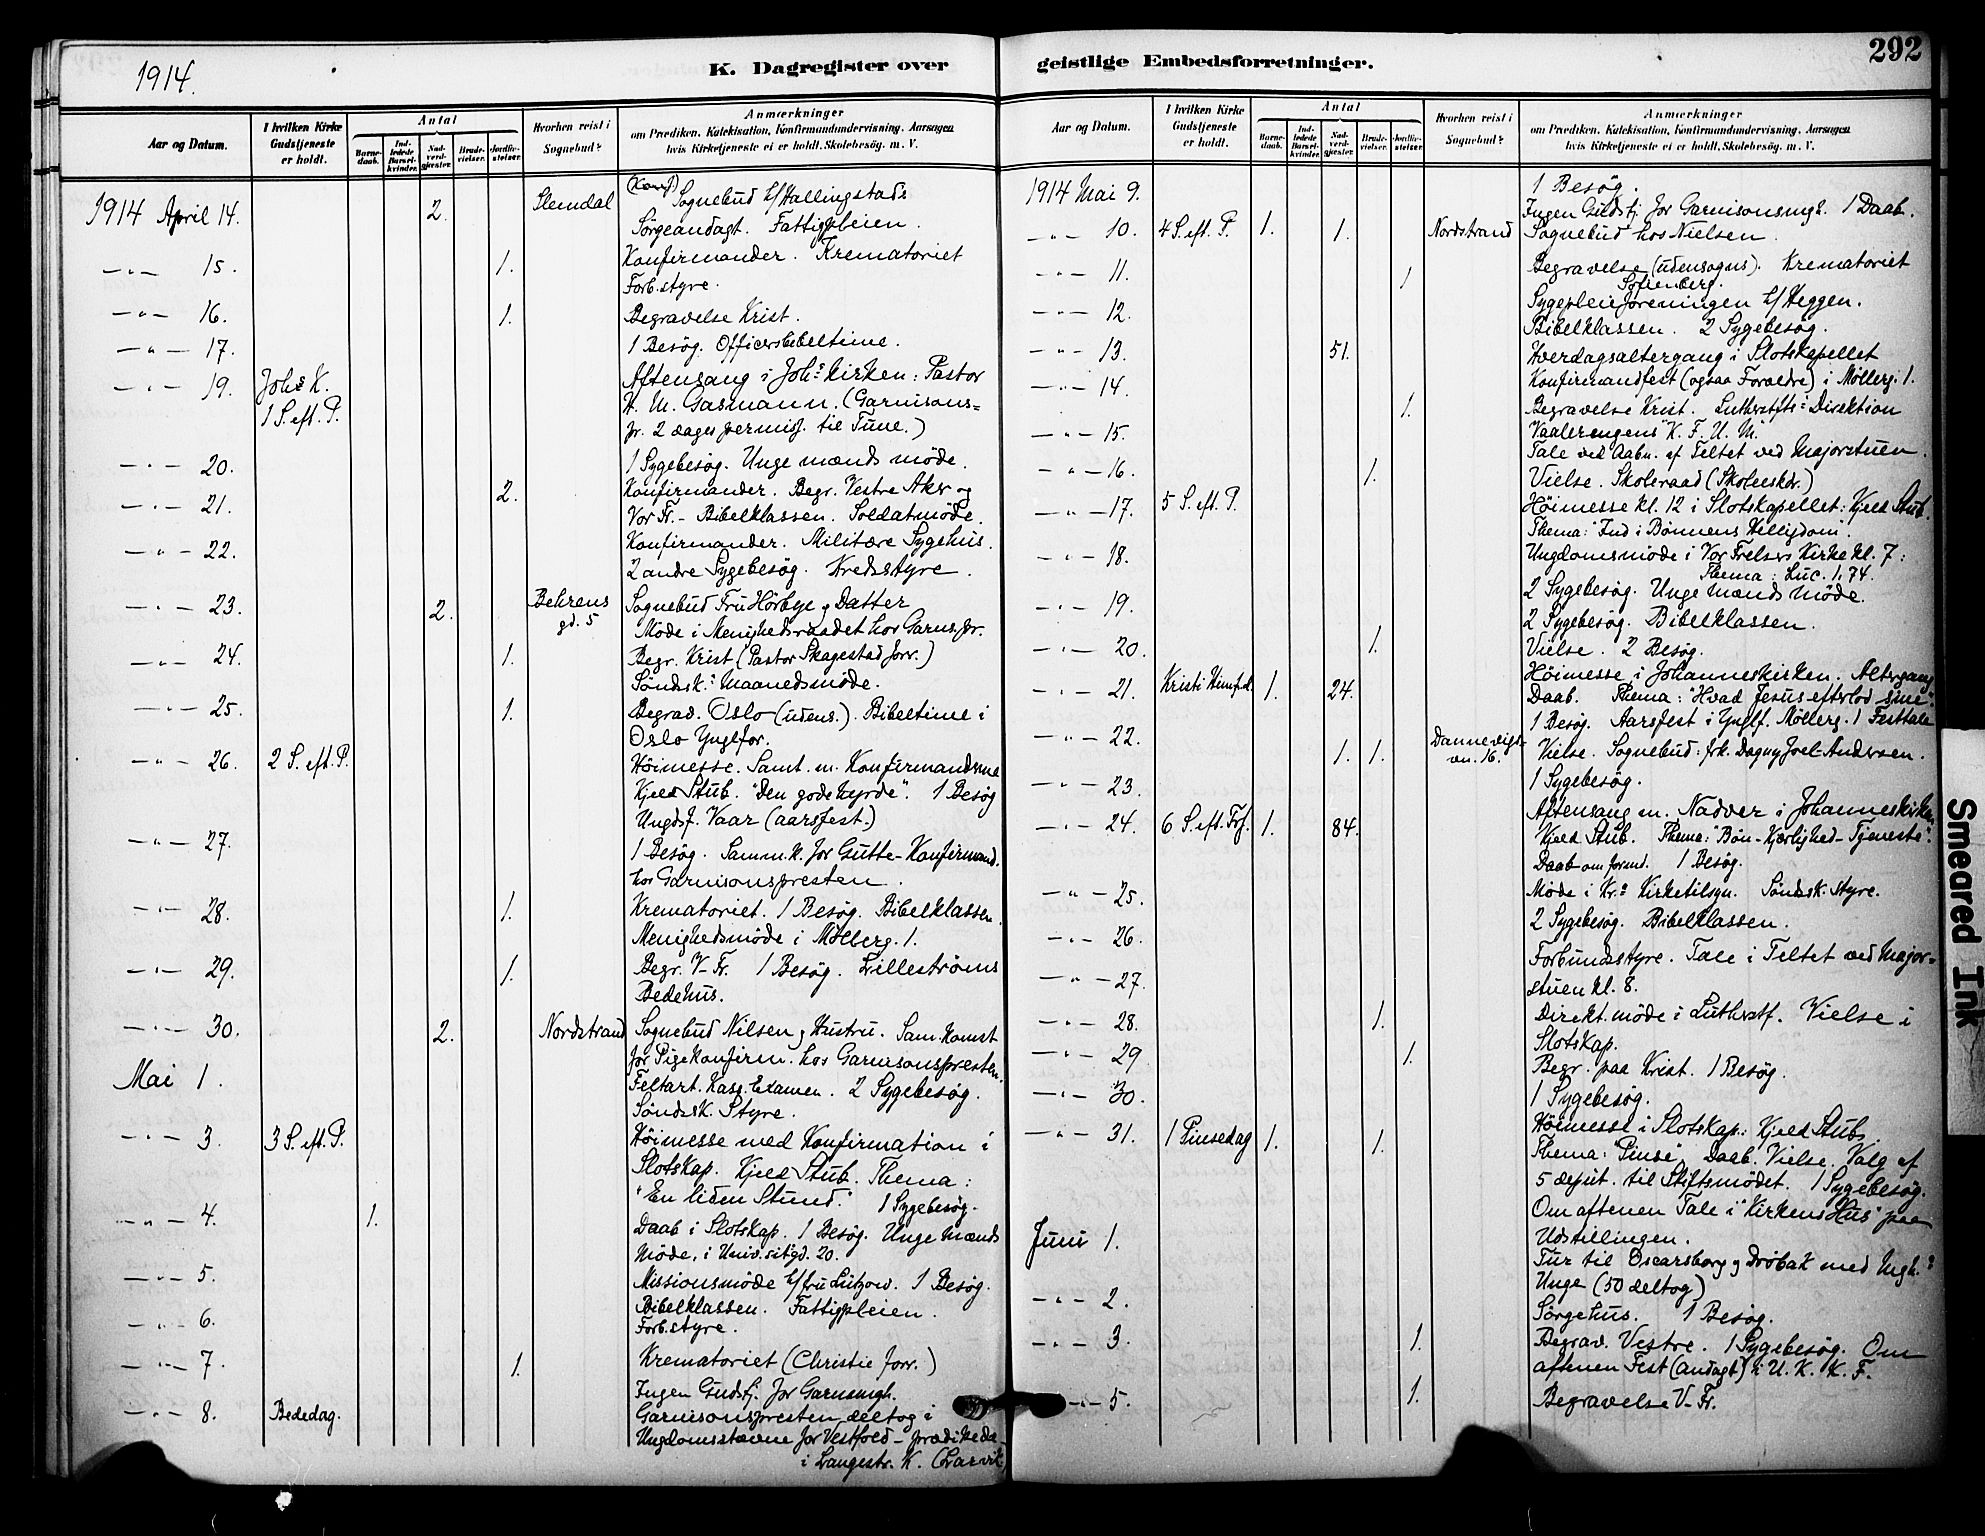 1914.
K. Dagregister over
Aar og Datum.
I hvilken Kirke Gudstjeneste er holdt.
Antal
Barnedaab.
Indledede Barselkvinder.
Nadverdgjæster.
Brudevielser.
Jordfæstelser.
Hvorhen reist i Sognebud?
Anmærkninger
om Prædiken, Katekisation, Konfirmandundervisning, Aarsagen
hvis Kirketjeneste ei er holdt, Skolebesög, m. V.
1914 April 14. 2. Slemdal Sognebud h/Hallingstads
Sörgeandagt. Fattigpleien.
— " — 15. 1. Konfirmander. Krematoriet
Forb.styre.
— " — 16. 1. Begravelse Krist.
— " — 17. 1 Besög. Officersbibeltime.
— " — 19. Johs K. Aftensang i Johs kirken: Pastor
1 S. eft. P. H. M. Gasmann. (Garnisons=
pr. 2 dages permiss. til Tune.)
— " — 20. 1 Sygebesög. Unge mænds möde.
— " — 21. 2. Konfirmander. Begr. Vestre Aker og
Vor Fr. – Bibelklassen. Soldatmöde.
— " — 22. Konfirmander. Militære Sygehus.
2 andre Sygebesög. Kredsstyre.
— " — 23. 2. Behrens gd. 5 Sognebud Fru Hörbye og Datter
Möde i Menighedsraadet hos Garns.pr.
— " — 24. 1. Begr. Krist (Pastor Skagestad forr.)
Söndsk.s Maanedsmöde.
— " — 25. 1. Begrav. Oslo (udens.). Bibeltime i
Oslo Ynglfor.
— " — 26. 2 S. eft. P. Höimesse. Samt. m. Konfirmanderne
Kjeld Stub. "Den gode hyrde". 1 Besög
Ungdsf. Vaar (aarsfest.)
— " — 27. 1 Besög. Samm.k. for Gutte-Konfirmand.
hos Garnisonspresten.
— " — 28. 1. Krematoriet. 1 Besög. Bibelklassen.
Menighedsmöde i Mölberg. 1.
— " — 29. 1. Begr. V– Fr. 1 Besög. Lilleströms
Bedehus.
— " — 30. 2. Nordstrand Sognebud Nilsen og Hustru. Sam.komst
for Pigekonfirm. hos Garnisonspresten.
Mai 1. Feltart. Kasg. Examen. 2 Sygebesög.
Söndsk. Styre.
— " — 3. 3 S. eft. P. Höimesse med Konfirmation i
Slotskap. Kjeld Stub. Thema:
"En liden Stund." 1 Sygebesög.
— " — 4. 1. Daab i Slotskap. 1 Besög. Unge Mænds
Möde, i Univ.sitgd. 20.
— " — 5. Missionsmöde h/fru Lützow. 1 Besög.
Bibelklassen. Fattigpleien.
— " — 6. Forb.styre.
— " — 7 1. Krematoriet (Christie forr.)
— " — 8. Bededag. Ingen Gudstj. for Garnsmgh.
Garnisonspresten deltog i
Ungdomsstævne for Vestfold – prædikede
i Langestr. K. (Larvik)
geistlige Embedsforretninger.
292
Aar og Datum.
I hvilken Kirke Gudstjeneste er holdt.
Antal
Barnedaab.
Indledede Barselkvinder.
Nadverdgjæster.
Brudevielser.
Jordfæstelser.
Hvorhen reist i Sognebud?
Anmærkninger
om Prædiken, Katekisation, Konfirmandundervisning, Aarsagen
hvis Kirketjeneste ei er holdt, Skolebesög, m. V.
1914 Mai 9. 1 Besög.
Ingen Gudstj. for Garnisonsmgh. 1 Daab.
— " — 10. 4 S. eft. P. 1. 1. Nordstrand Sognebud hos Nielsen.
— " — 11. 1 Begravelse (udensogns). Krematoriet
Sofienberg.
— " — 12. Sygepleieforeningen h/Heggen.
Bibelklassen. 2 Sygebesög.
— " — 13. 51. Hverdagsaltergang i Slotskapellet
— " — 14. Konfirmandfest (ogsaa Forældre) i Möllerg. 1.
1. Begravelse Krist. Lutherstfts Direktion
— " — 15. "Vaalerengens" K. F. U. M.
Tale ved Aabn. af Teltet ved Majorstuen.
— " — 16. 1. Vielse. Skoleraad
— " — 17. 5 S. eft. P. Höimesse kl. 12 i Slotskapellet: Kjeld Stub.
Thema: "Ind i Bönnens Helligdom".
— " — 18. Ungdomsmöde i Vor Frelsers Kirke kl. 7:
Thema: Luc. 1,74.
2 Sygebesög. Unge Mænds Möde.
— " — 19. 2 Sygebesög. Bibelklassen.
— " — 20. 1. Vielse. 2 Besög.
— " — 21. Kristi Himf.d. 1. 24. Höimesse i Johanneskirken. Altergang
Daab. Thema: "Hvad Jesus efterlod sine".
1 Besög. Aarsfest i Ynglf. Möllerg. 1 Festtale
— " — 22. 1. 1. Dannevigs-vn. 16. Vielse. Sognebud: frk. Dagny Joel-Andersen.
— " — 23. 1 Sygebesög.
— " — 24. 6 S. eft. Trf. 1. 84. Aftensang m. Nadver i Johanneskirken
Kjeld Stub. Thema: "Bön – Kjærlighed – Tjeneste".
Daab om formd. 1 Besög.
— " — 25. Möde i Kr.s Kirketilsyn. Söndsk. styre.
2 Sygebesög. Bibelklassen.
— " — 26. Forbundsstyre. Tale i Teltet ved Major=
— " — 27. stuen kl. 8.
— " — 28. 1. Direkt. möde i Lutherstf. Vielse i
Slotskap.
— " — 29 1. Begr. paa Krist. 1 Besög.
— " — 30. 1 Sygebesög.
— " — 31. 1 Pinsedag 1. 1. Höimesse i Slotskap: Kjeld Stub.
Thema: "Pinse". Daab. Vielse. Valg af
5 deput. til Stiftsmödet. 1 Sygebesög.
Om aftenen Tale i "Kirkens Hus" paa
Juni 1. Udstillingen.
Tur til Oscarsborg og Dröbak med Mgh.s
Unge (50 deltog)
— " — 2. Sörgehus. 1 Besög.
— " — 3. 1. Begrav. Vestre. 1 Sygebesög. Om
aftenen Fest (andagt) i U. K. K. F.
— " — 5. 1. Begravelse V– Fr.
Smeared Ink